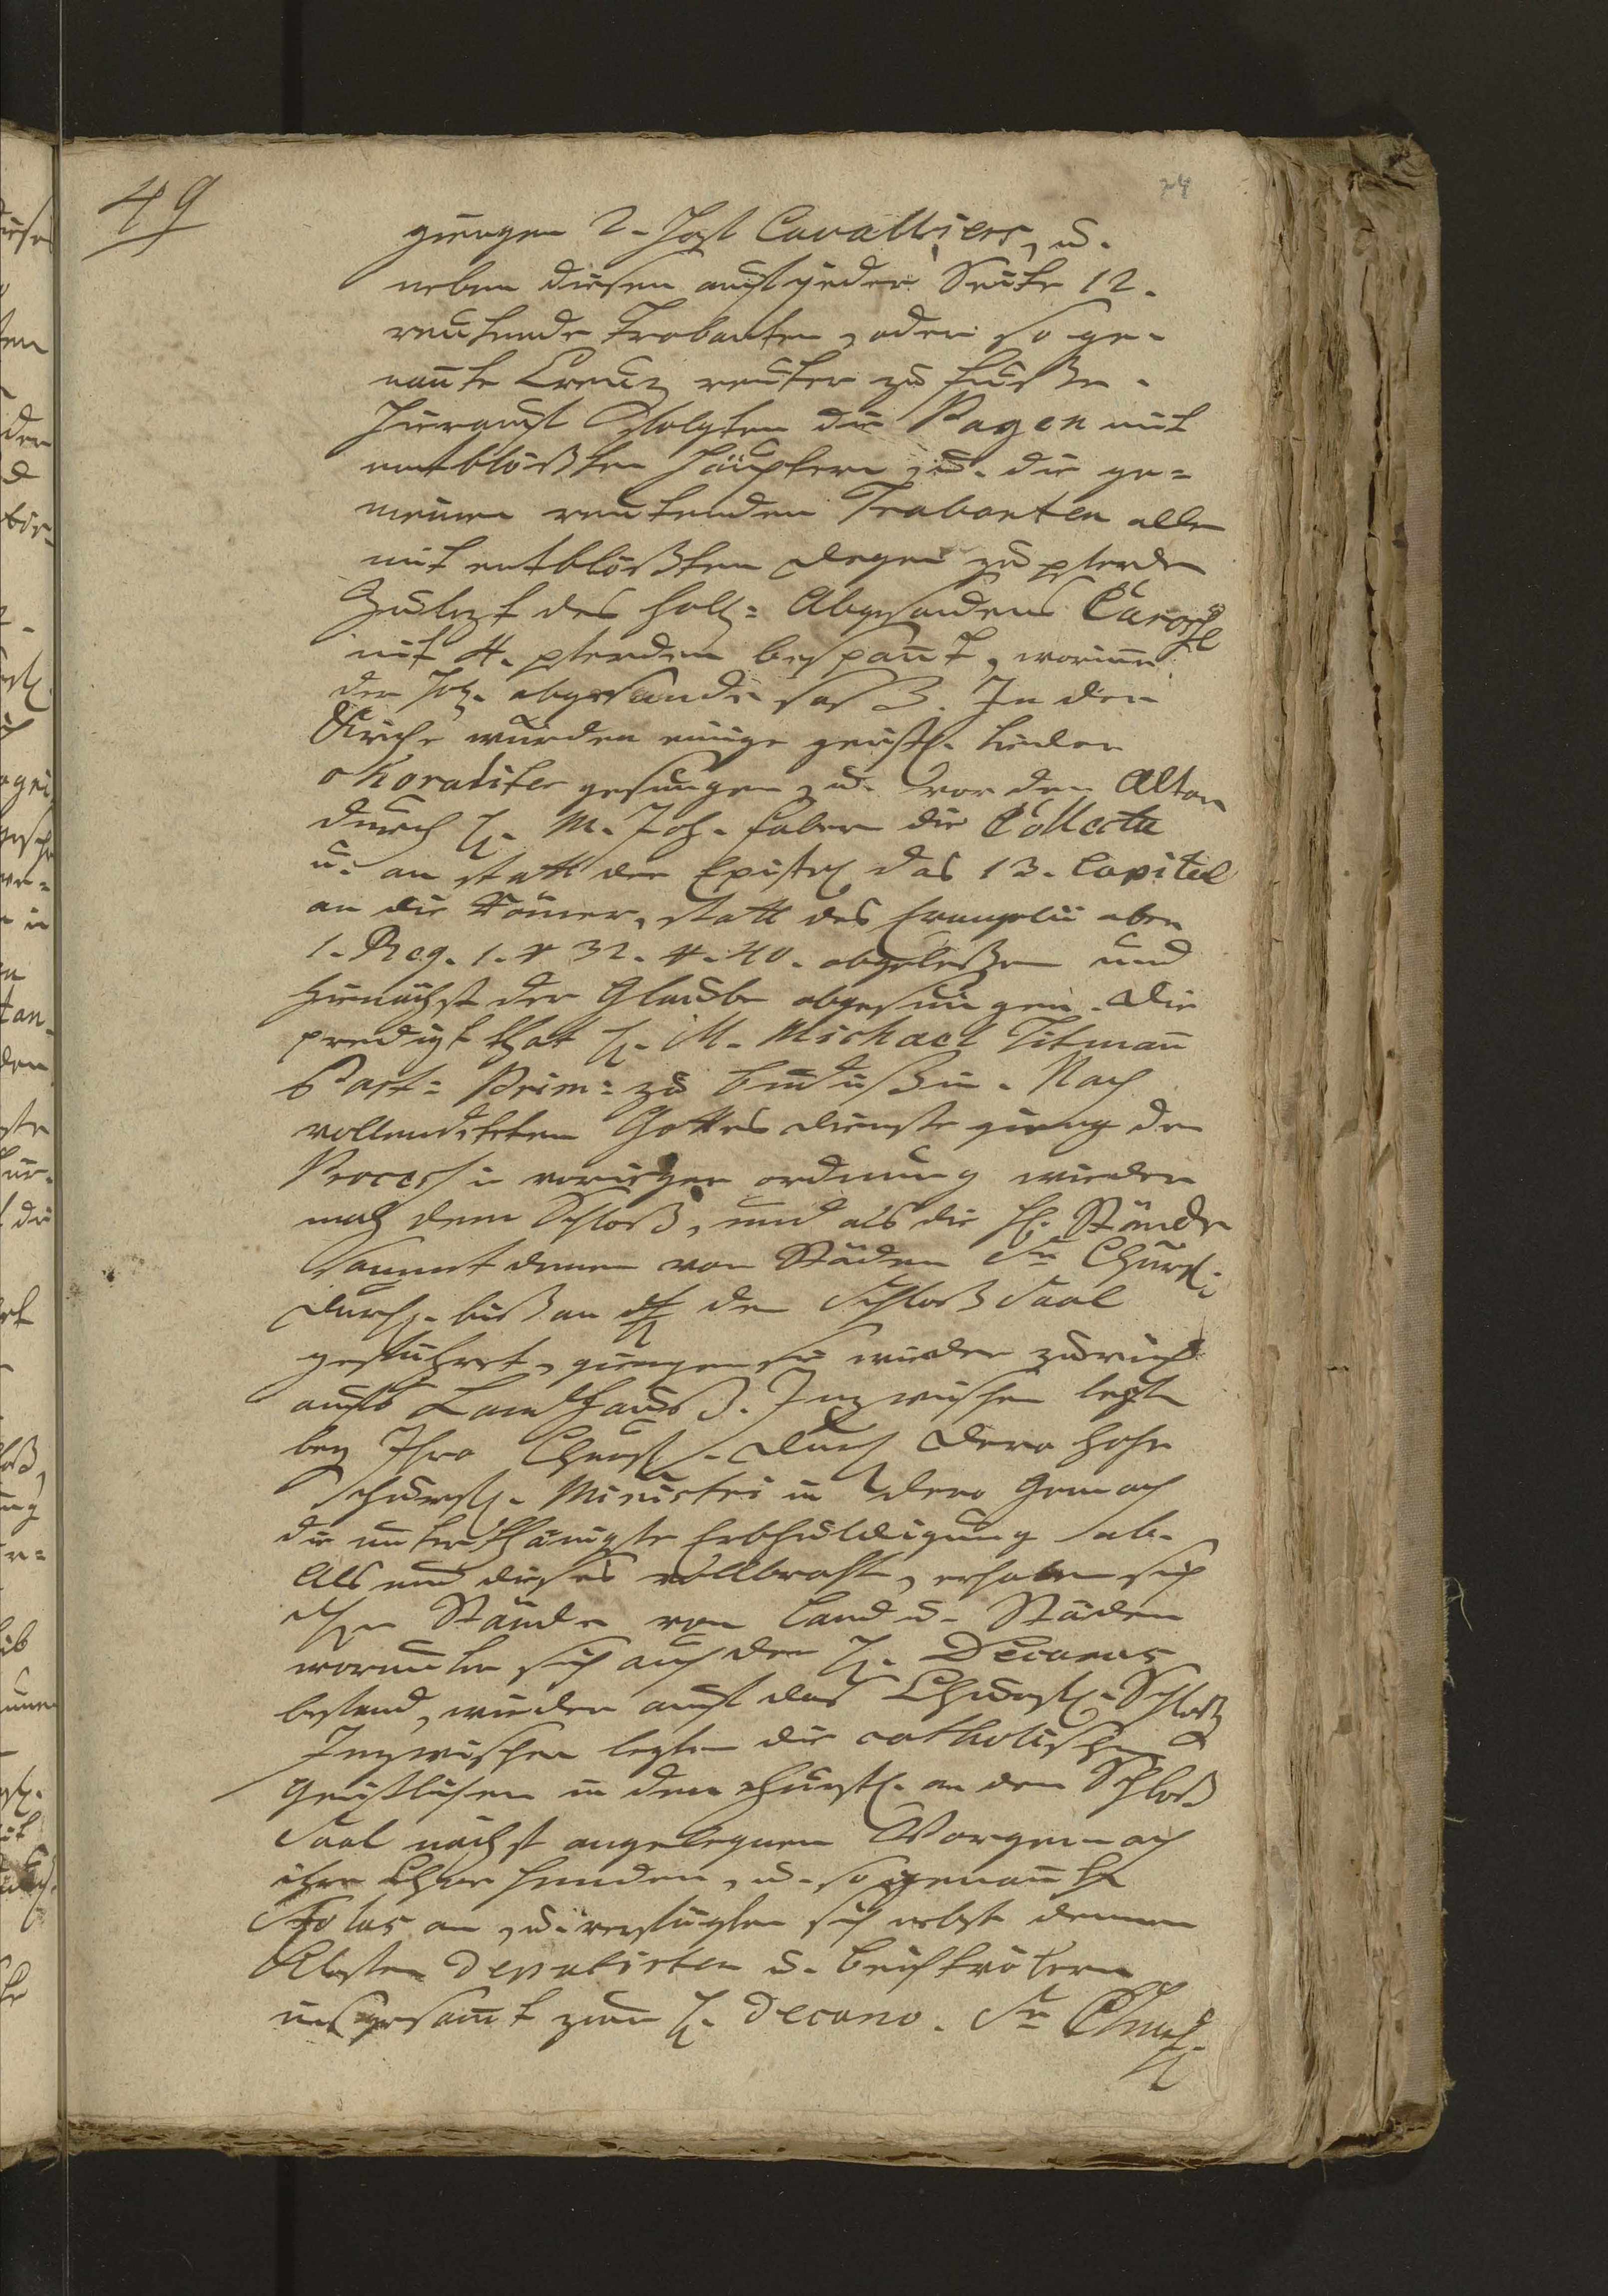 49
giengen 2. Hof Cavalliers, u.
neben diesen auf jeder Seite 12.
reutende Trabanten, oder so ge-
nante Creuz reuter zu fusse.
Hierauf folgten die Pagen mit
entblößten Häuptern, u. die ge=
meinen reutenden Trabanten alle
mit entblößten degen zu pferde
Zuletzt des holl= Abgesandens Carosse
mit 4. pferden bespannt, worinne
der abgesande saß. In der
Kirche wurden einige geistl. Lieder
choraliter gesungen, u. vor den Altar
durch H. M. Joh. Faber die Collecta
u. an statt der Epistel das 13. Capitel
an die Römer, statt des Evangelii aber
1. Reg. 1. v 32. 40. abgelesen und
hiernächst der Glaube abgesungen. Die
predigt that H. M. Michael Titmann
Past= Prim= zu budißin. Nach
vollendeten Gottesdienste gieng der
Process in voriger ordnung wieder
nach dem Schloß, und als die H. Stände
sammt denen von Städen Sr Churfl.
Durchl. biß an den Schloß Saal
geführet, giengen sie wieder zurück
aufs Landhauß. Inzwischen legte
bey Ihro Churfl. Durchl dero hohe
Ministri in dero Gemach
die unterthänigste Erbhuldigung ab.
Als nun dieses vollbracht, erhoben sich
Stände von Land u. Städen
worunter sich auch der H. Decanus
befand, wieder auf das Churfl. Schloß
Inzwischen legten die catholischen
Geistlichen in dem Churfl. an den Schloß
Saal nächst angelegnen Vorgemach
ihre Chor hemden, u. sogenante
Stolas an, u. verfügten sich nebst denen
Closter Deputirten u.
insgesamt zum H. Decano. Sr Churfl.